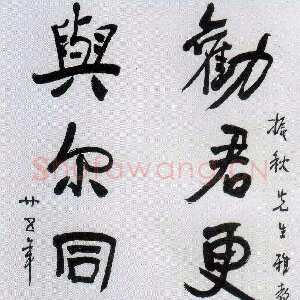 振秋先生雅教
勸君更
與尔同
廿五年